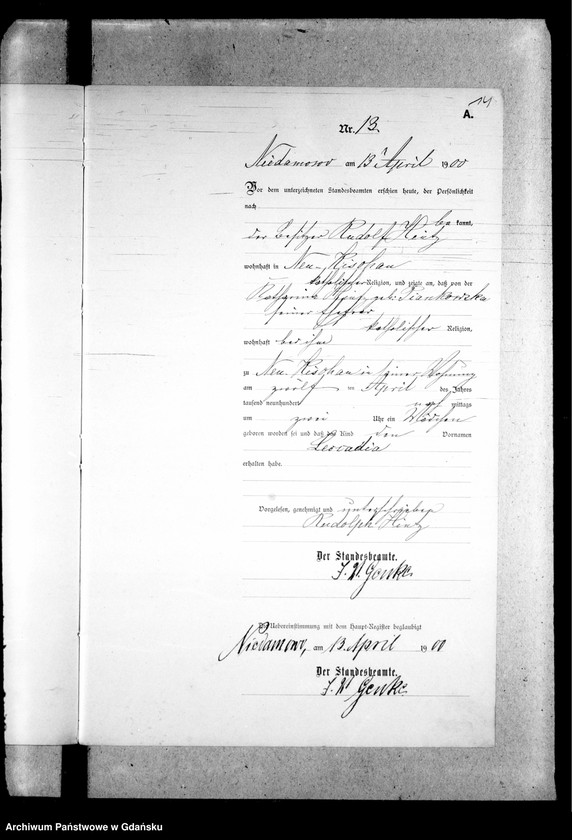 14
A.
Nr. 13.
Niedamowo am 13 April 1900
Vor dem unterzeichneten Standesbeamten erschien heute, der Persönlichkeit
nach
be kannt,
der Besitzer Rudolf Hintz
wohnhaft in Neu-Kischau
katholischer Religion, und zeigte an, daß von der
Katharina Hintz geb.
seiner Ehefrau
katholischer Religion,
wohnhaft bei ihm
zu Neu-Kischau in seiner Wohnung
am zwölf ten April des Jahres
tausend neunhundert nach mittags
um zwei Uhr ein Mädchen
geboren worden sei und daß das Kind den Vornamen
Leocadia
erhalten habe.
Vorgelesen, genehmigt und unterschrieben
Rudolph Hintz
Der Standesbeamte.
Genke.
Die Uebereinstimmung mit dem Haupt-Register beglaubigt
Niedamowo, am 13. April 1900
Der Standesbeamte.
Genke
Archiwum Państwowe w Gdańsku